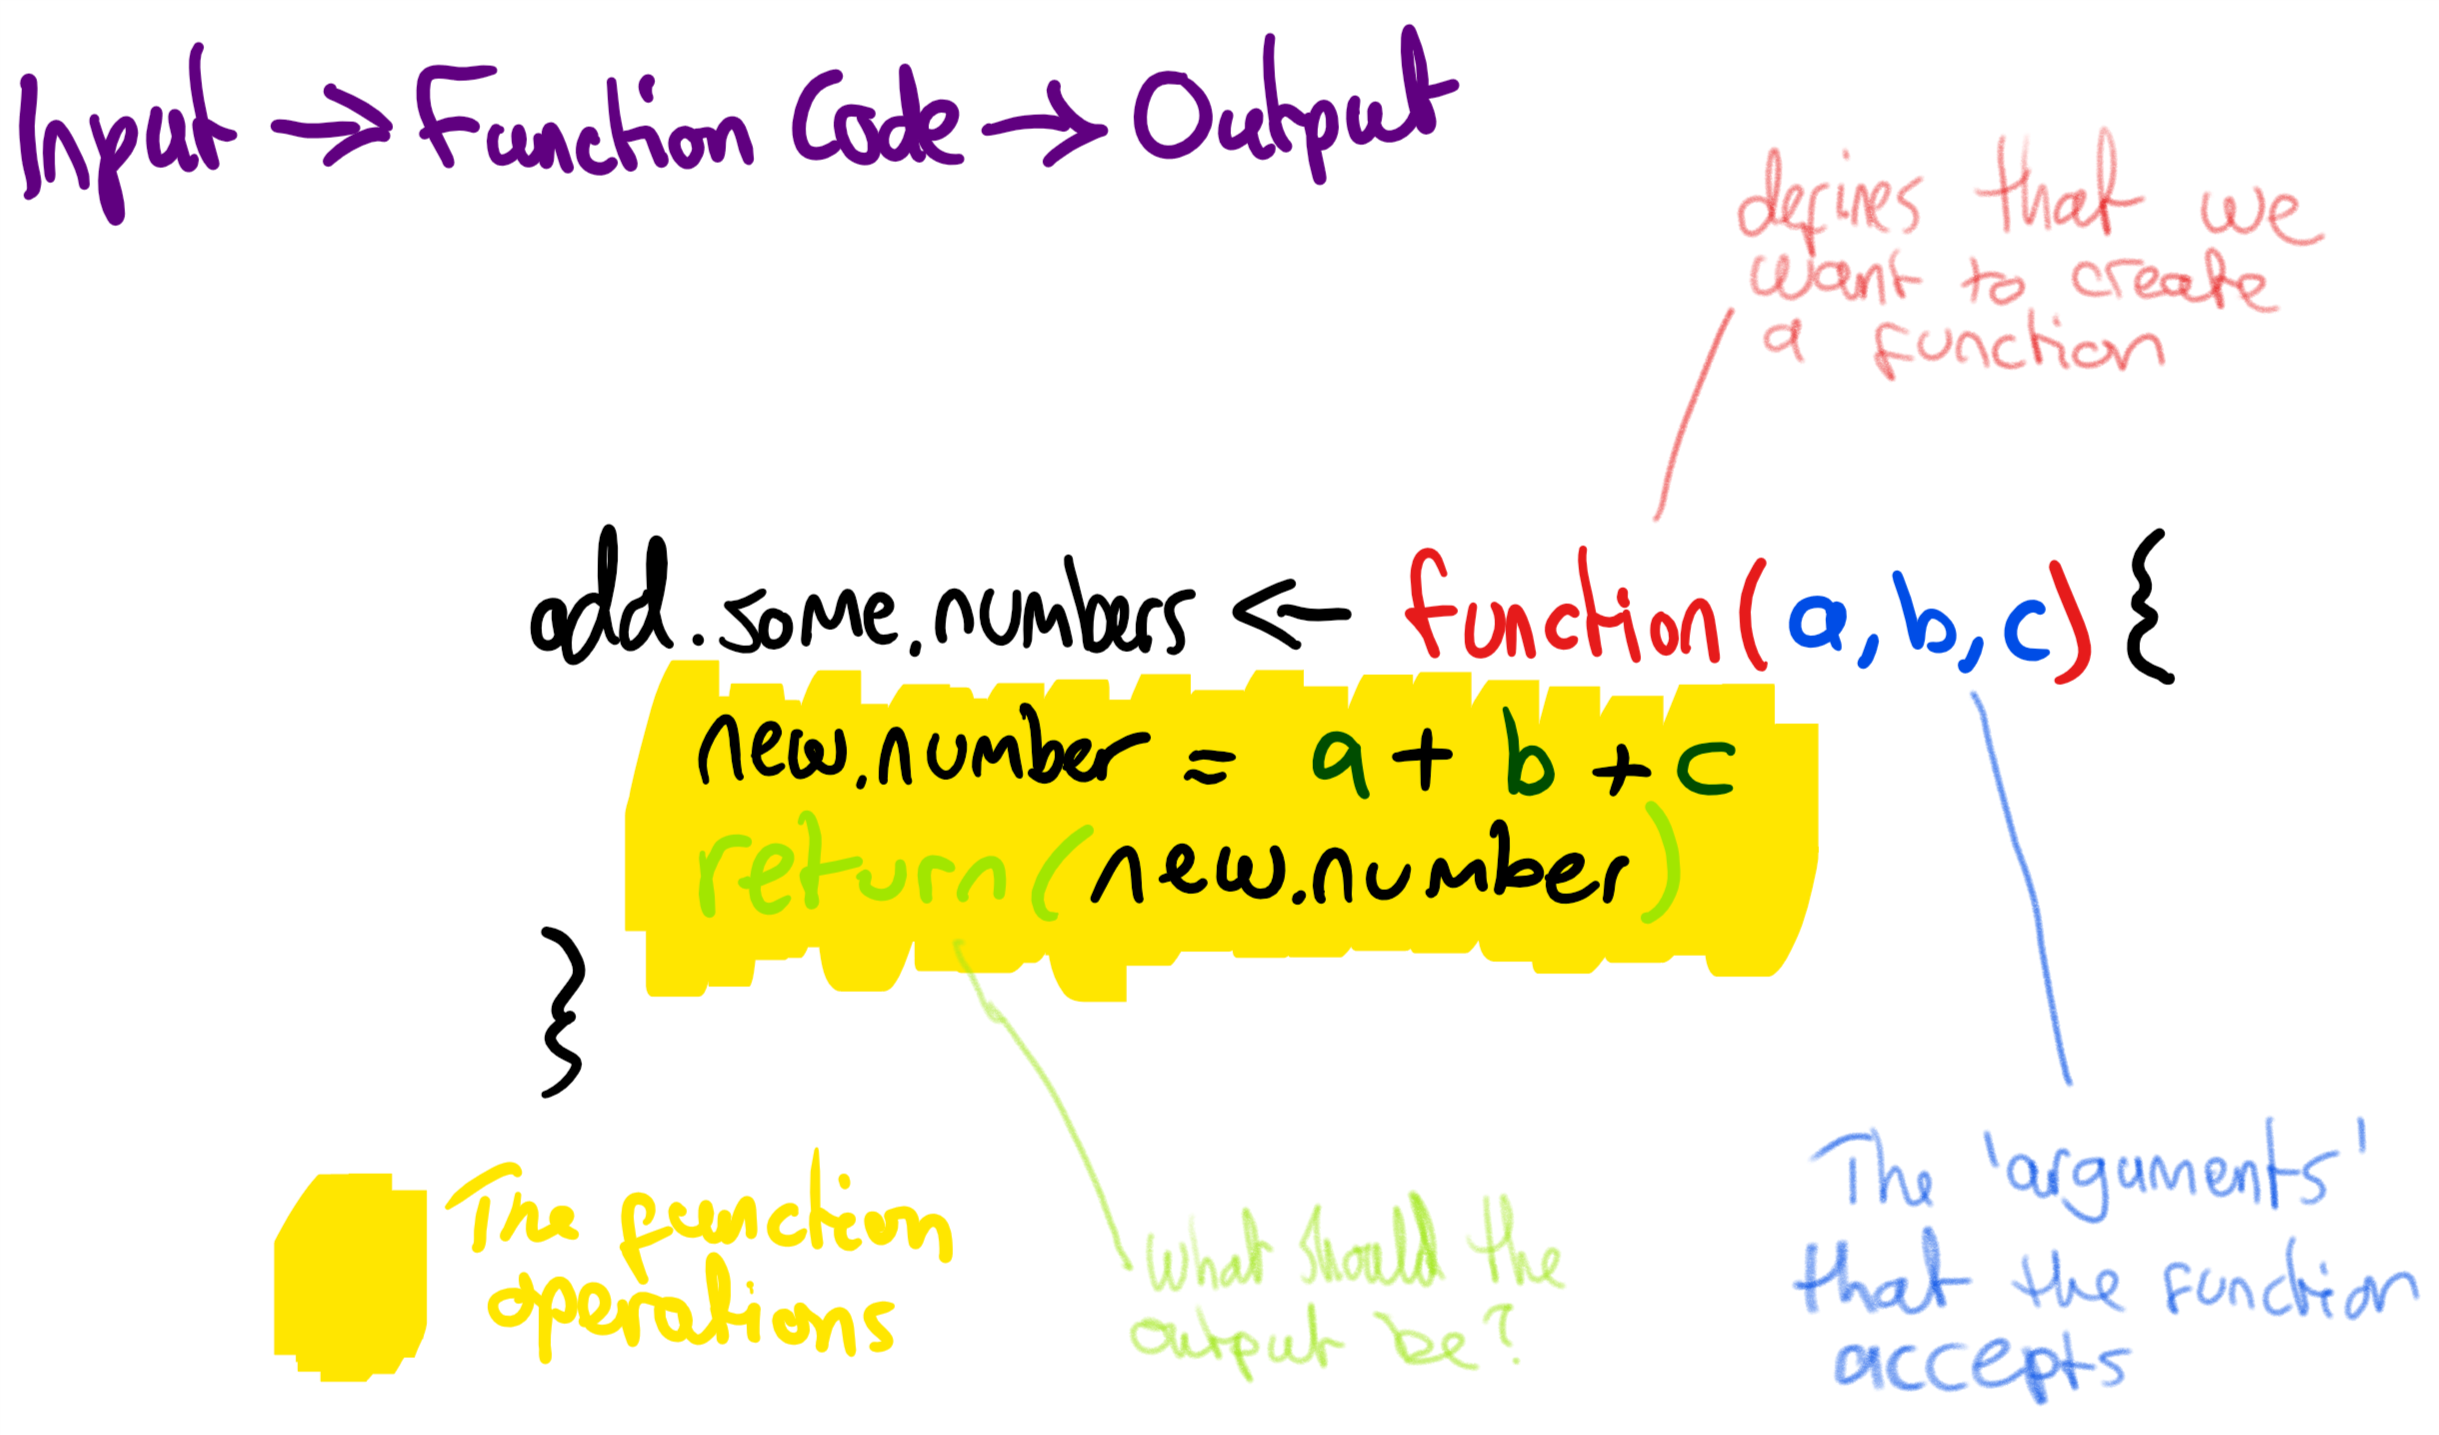 Input → Function Code → Output
defines that we
want to create
a function
add.some.numbers <- function(a,b,c) {
new.number = a + b + c
return(new.number)
}
The function
operations
What should the
output be?
The 'arguments'
that the function
accepts